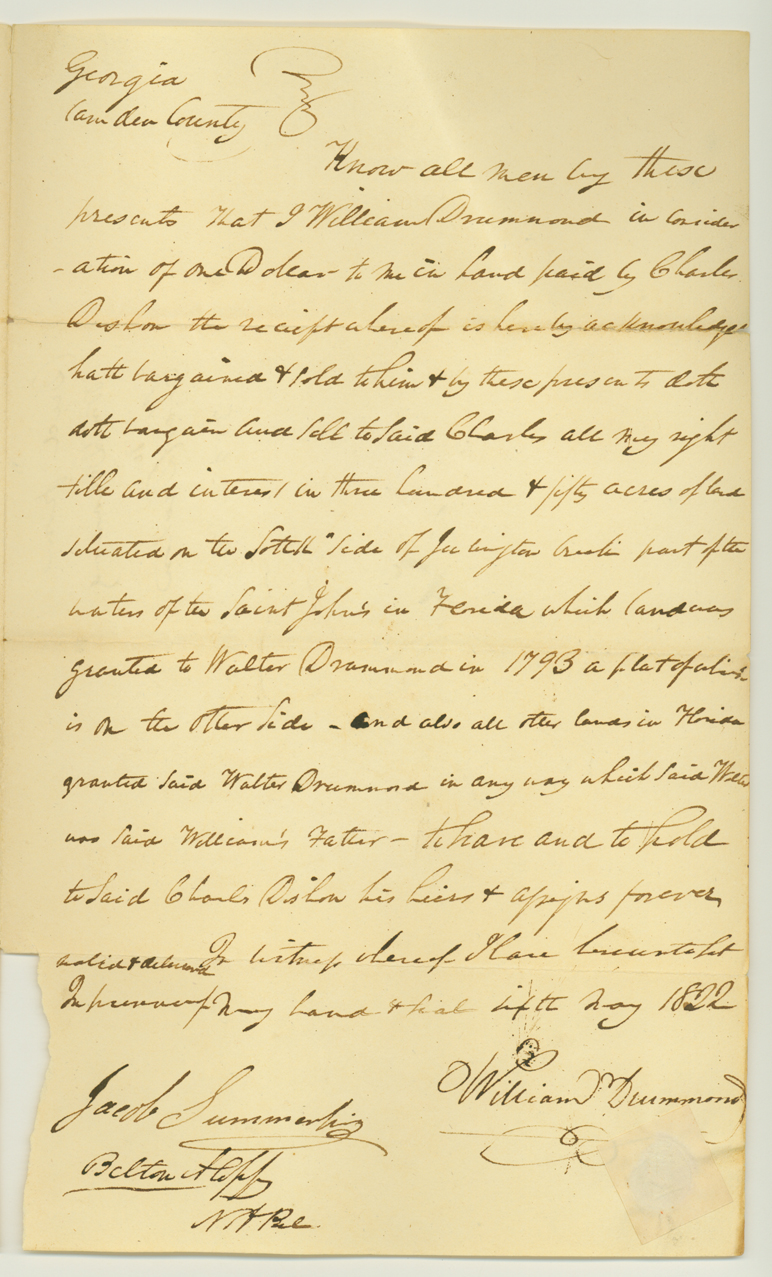 Georgia
Camden County
Know all men by these
presents that I William Drummond in consider
-ation of one Dolear to me in hand paid by Charles
Dishon the reciept whereof is hereby acknowledge
hath bargained & sold to him & by these presents doth
doth bargain and sell to said Charles all my right
title and interest in three hundred & fifty acres of land
situated on the South side of Creek part of the
waters of the Saint John's in Florida which land was
granted to Walter Drummond in 1793 a plat of which
is on the other side - and also all other lands in Florida
granted said Walter Drummond in any way which said Walter
was said William's Father - to have and to hold
to said Charles Dishon his heirs & assigns forever
In witness whereof I have hereunto set
sealed & delivered
In presence of my hand & seal May 1822
William Drummond
Jacob Summerlin
Belton A Copp